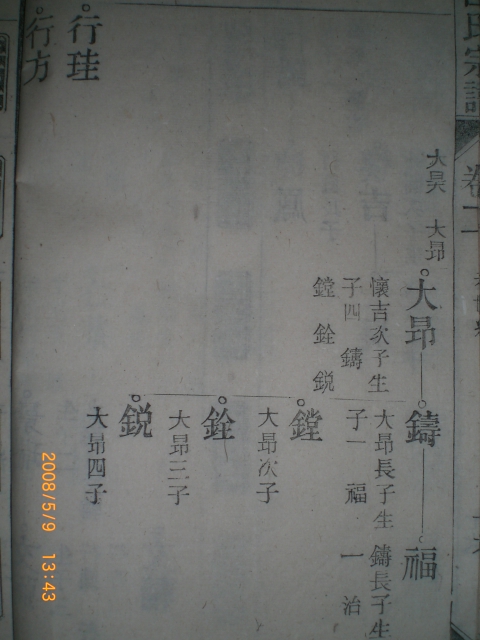 氏宗譜
卷一
大昊 大昴
大昴
懷吉次子生
子四 鑄
鏜 銓 鋭
鑄
大昴長子生
子一 福
福
鑄長子生
一 治
鏜
大昴次子
銓
大昴三子
鋭
大昴四子
行珪
行方
2008/5/9 13:43